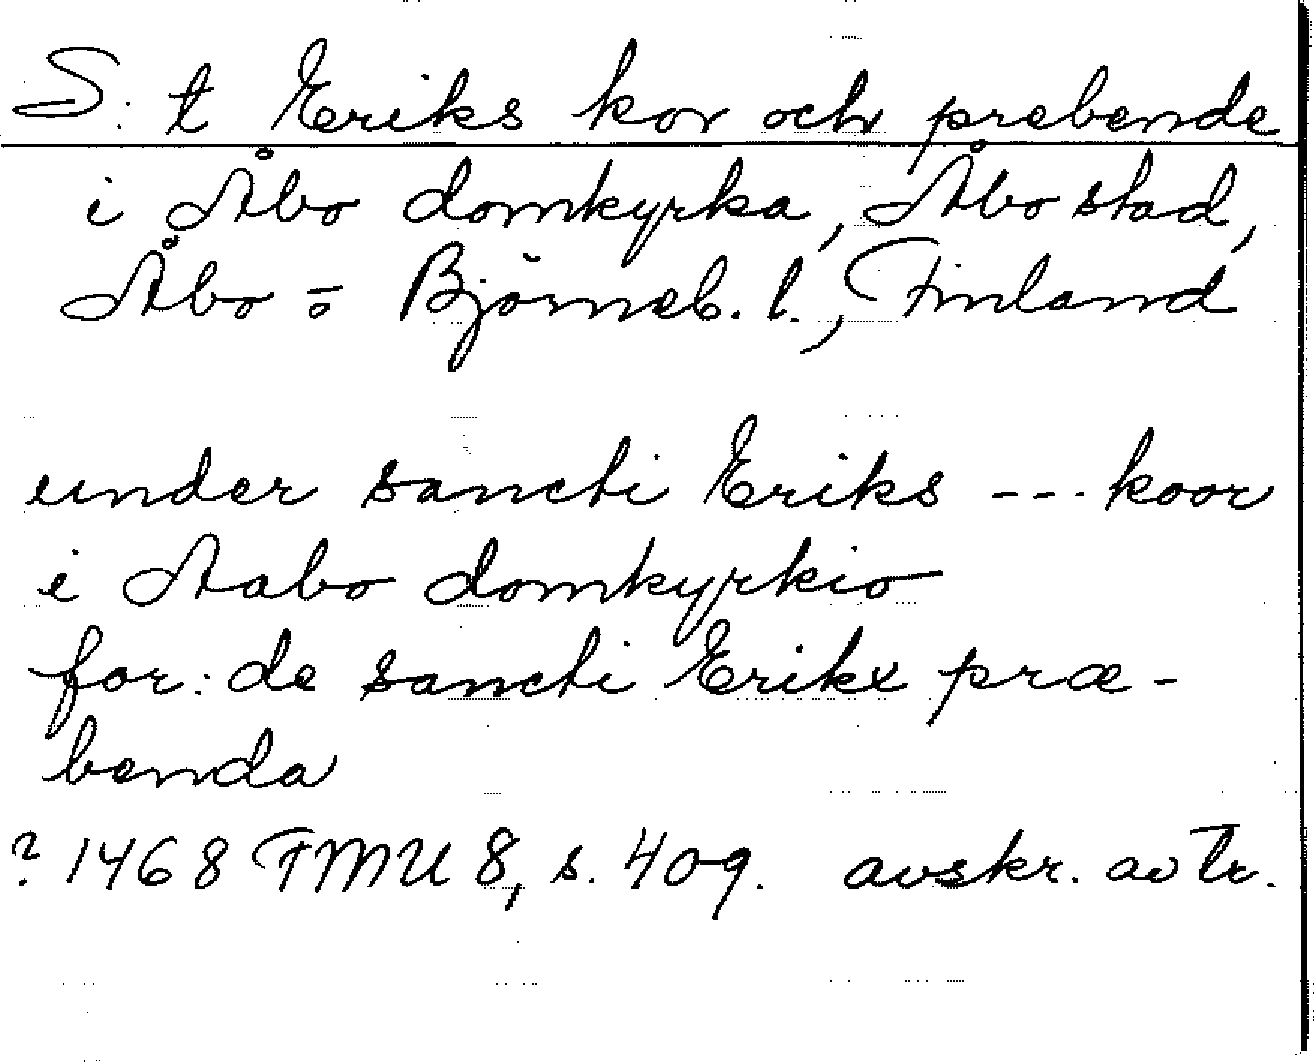 S:t Eriks kor och prebende
i Åbo domkyrka, Åbo stad,
Åbo = o Björneb. l., Finland
under sancti Eriks --- koor
i Aabo domkyrkio
for: de sancti Erikx præ-
benda
? 1468 FMU 8, s. 409. avskr. av Tr.